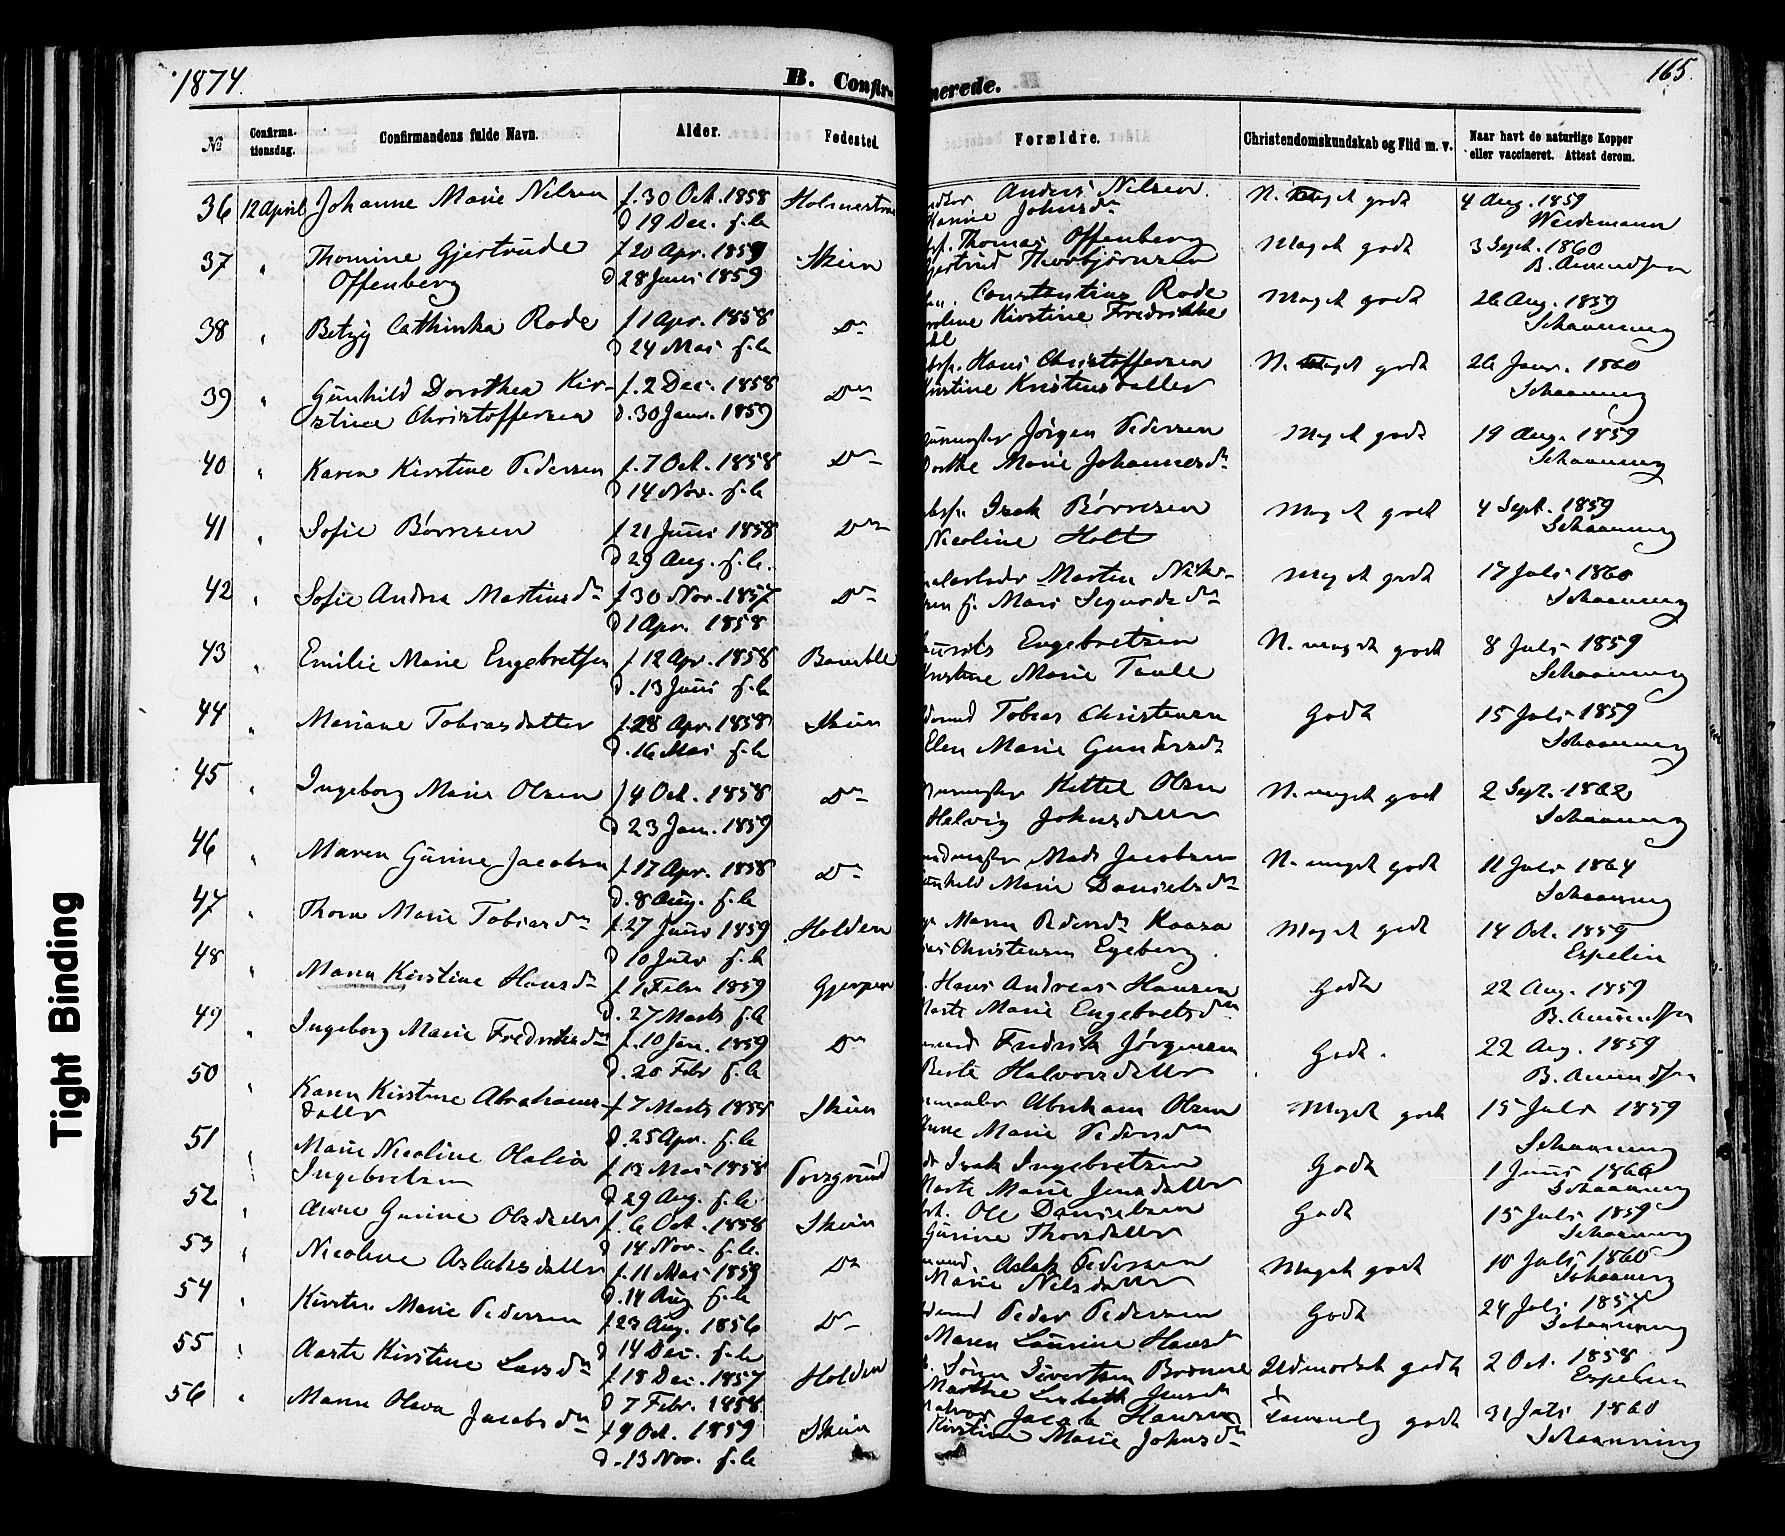 1874.
B. Confir-
merede.
165.
№
Confirma-
tionsdag.
Confirmandens fulde Navn.
Alder.
Fødested.
Forældre.
Christendomskundskab og Flid m. v.
Naar havt de naturlige Kopper
eller vaccineret. Attest derom.
36 12 April Johanne Marie Nilsen f. 30 Oct. 1858 Holmestra Anders Nilsen. N. meget godt 4 Aug. 1859
D 19 Dec. s. a. Hanne Johnsdn Weidemann
37 " Thomine Gjertrude f 20 Apr. 1859 Skien Thomas Offenberg Meget godt 3 Sept. 1860
Offenberg D 28 Juni 1859 Gjertrud Thorbjørnsen B. Amundsen
38 " Betzy Cathinka Rode f 1 Apr. 1858 Do Constantius Rode Meget godt 26 Aug. 1859
D 24 Mai s. a. Kirstine Fredrikke Schaanning
39 " Gunhild Dorothea Kir- f. 2 Dec. 1858 Do Hans Christoffersen N. meget godt 26 Janr. 1860
stine Christoffersen D. 30 Janr. 1859 Kirstine Kristensdatter Schaanning
40 " Karen Kirstine Pedersen f. 7 Oct. 1858 Do Jørgen Pedersen Meget godt 19 Aug. 1859
D 14 Nov. s. a. Marie Johannesdn Schaanning
41 " Sofie Børresen f 21 Juni 1858 Do Isak Børresen Meget godt 4 Sept. 1859
D 29 Aug. s. a. Nicoline Holt Schaanning
42 " Sofie Andrea Martinsdn f 30 Nov. 1857 Do Martin Meget godt 17 Juli 1860
D 1 Apr. 1858 Mari Sigurdsdn Schaanning
43 " Emilie Marie Engebretsen f 12 Apr. 1858 Bamble Engebretsen N. meget godt 8 Juli 1859
D. 13 Juni s. a. Marie Schaanning
44 " Mariane Tobiasdatter f. 28 Apr. 1858 Skien Tobias Christensen Godt 15 Juli 1859
D. 16 Mai s. a. Elen Marie Gundersdn Schaanning
45 " Ingeborg Marie Olsen f 4 Oct. 1858 Do Kittel Olsen N. meget godt 2 Sept. 1862
D 23 Jan. 1859 Helvig Johnsdatter Schaanning
46 " Maren Gurine Jacobsen f. 17 Apr. 1858 Do Mads Jacobsen N. meget godt 11 Juli 1864
D. 8 Aug. s. a. Marie Danielsdn Schaanning
47 " Thora Marie Tobiasdn f. 27 Juni 1859 Holden Maren Pedersdn Kaasa Meget godt 14 Oct. 1859
D 10 Julr s. a. Christensen Egeberg. Espelin
48 " Maren Kirstine Hansdn f 1 Febr 1859 Gjerpen Hans Andreas Hansen Godt 22 Aug. 1859
D. 27 Marts s. a. Marte Marie Engebretsdn B. Amundsen
49 " Ingeborg Marie Fredriksdn f. 10 Jan. 1859 Do Fredrik Jørgensen Godt. 22 Aug. 1859
D. 20 Febr s. a. Berte Halvorsdatter B. Amundsen
50 " Karen Kirstine Abrahams- f 7 Marts 1858 Skien Abraham Olsen Meget godt 15 Juli 1859
datter D. 25 Apr. s. a. Anne Marie Pedersdn Schaanning
51 " Marie Nicoline Olalia f 13 Mai 1858 Porsgrund Isak Ingebretsen Godt 1 Juni 1866
Ingebretsen D 29 Aug. s. a. Marte Marie Jensdatter Schaanning
52 " Anne Gurine Olsdatter f. 6 Oct. 1858 Skien Ole Danielsen Godt 15 Juli 1859
D 14 Nov. s. a. Gurine Thorsdatter Schaanning
53 " Nicoline Aslaksdatter f. 11 Mai 1859 Do Aslak Pedersen Meget godt 10 Juli 1860
D. 14 Aug s. a. Marie Nilsdatter Schaanning
54 " Kirstin Marie Pedersen f 23 Aug. 1856 Do Peder Pedersen Godt 24 Juli 1857
D 14 Dec. s. a. Maren Laurine Hansdn Schaanning
55 " Aaste Kirstine Larsdn f 18 Dec. 1857 Holden Sivertsen Udmærket godt 2 Oct. 1858
D 7 Febr. 1858 Marthe Lisbeth Jensdn Espelin
56 " Maren Olava Jacobsdn f 9 Oct. 1859 Skien Jacob Hansen Temmelig godt 31 Juli 1860
D. 13 Nov. s. a. Kirstine Marie Johnsdn Schaanning
Tight Binding